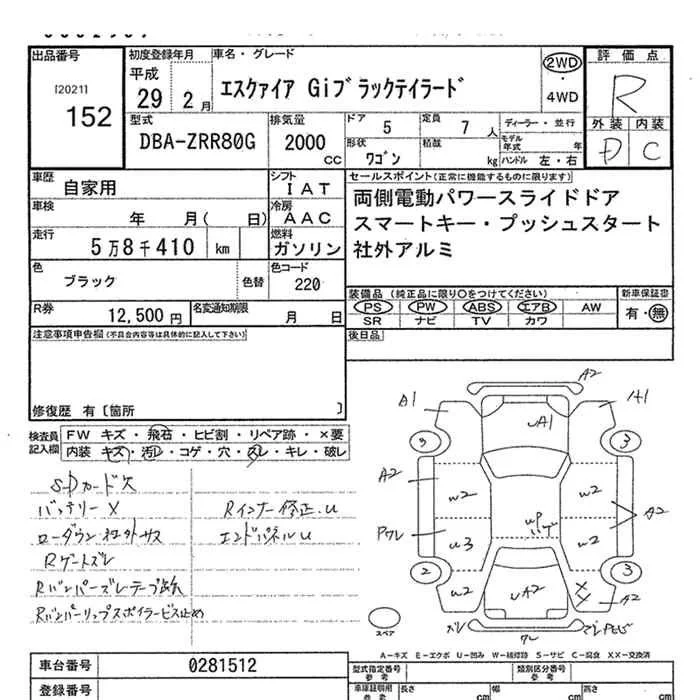 出品番号
[2021]
152
初度登録年月
平成
29 2月
車名・グレード
エスクァイア Giブラックテイラード
2WD
・
4WD
評価点
R
外装 内装
D C
型式
DBA-ZRR80G
排気量
2000
cc
ドア 5
定員 7 人
形状
ワゴン
積載
kg
ディーラー・並行
モデル年式 年
ハンドル 左・右
車歴
自家用
シフト
IAT
車検
年 月( 日)
冷房
AAC
走行
5万8千410 km
燃料
ガソリン
色
ブラック
色替
色コード
220
R券
12,500 円
名変通知期限
月 日
セールスポイント(正常に機能するものに限ります)
両側電動パワースライドドア
スマートキー・プッシュスタート
社外アルミ
装備品 (純正品に限り○をつけてください)
PS PW ABS エアB AW
SR ナビ TV カワ
新車保証書
有・無
後日品
注意事項申告欄(不具合内容等は具体的に記入して下さい)
修復歴 有〔箇所 〕
検査員記入欄
FW キズ・飛石・ヒビ割・リペア跡・×要
内装 キズ・汚レ・コゲ・穴・スレ・キレ・破レ
SDカード欠
バッテリーX
ローダウン社外サス
Rゲートズレ
Rバンパーズレテープ跡
Rバンパーリップスポイラービス止め
Rインナー修正.U
エンドパネルU
A2
A1
A1
UA1
3
3
A2
W2
W2
A2
UP
Pワレ
U3
W2
2
3
W2
UA2
XX
A2
ズレ
ワレ
スペア
A-キズ E-エクボ U-凹み W-補修跡 S-サビ C-腐食 XX-交換済
車台番号
0281512
登録番号
型式指定番号
参考
類別区分番号
参考
車庫証明用
参考
長さ cm
幅 cm
高さ cm